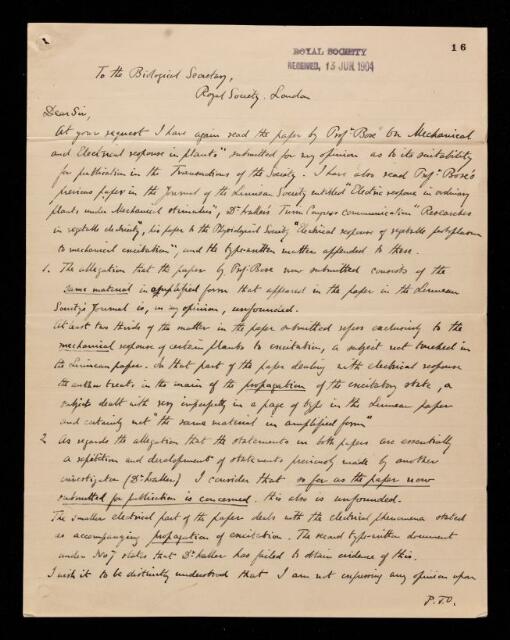 ROYAL SOCIETY
RECEIVED, 13 JUN. 1904
16
To the Biological Secretary,
Royal Society. London
Dear Sir,
At your request I have again read the paper by Prof. Bose "On Mechanical
and Electrical response in plants" submitted for my opinion as to its suitability
for publication in the Transactions of the Society. I have also read Prof. Bose's
previous paper in the Journal of the Linnean Society entitled "Electric response in ordinary
plants under Mechanical stimulus", Dr. Waller's Turin Congress communication "Researches
in vegetable electricity", his paper to the Physiological Society "Electrical response of vegetable protoplasm
to mechanical excitation", and the type-written matter appended to these.
1. The allegation that the paper by Prof. Bose now submitted consists of the
same material in amplified form that appeared in the paper in the Linnean
Society's Journal is, in my opinion, unfounded.
At least two thirds of the matter in the paper submitted refers exclusively to the
mechanical response of certain plants to excitation, a subject not touched in
the Linnean paper. In that part of the paper dealing with electrical response
the author treats in the main of the propagation of the excitatory state, a
subject dealt with very imperfectly in a page of type in the Linnean paper
and certainly not "the same material in amplified form"
2. As regards the allegation that the statements in both papers are essentially
a repetition and development of statements previously made by another
investigator (Dr. Waller) I consider that so far as the paper now
submitted for publication is concerned. this also is unfounded.
The smaller electrical part of the paper deals with the electrical phenomena stated
as accompanying propagation of excitation. The second type-written document
under No 7 states that Dr. Waller has failed to obtain evidence of this.
I wish it to be distinctly understood that I am not expressing any opinion upon
P.T.O.